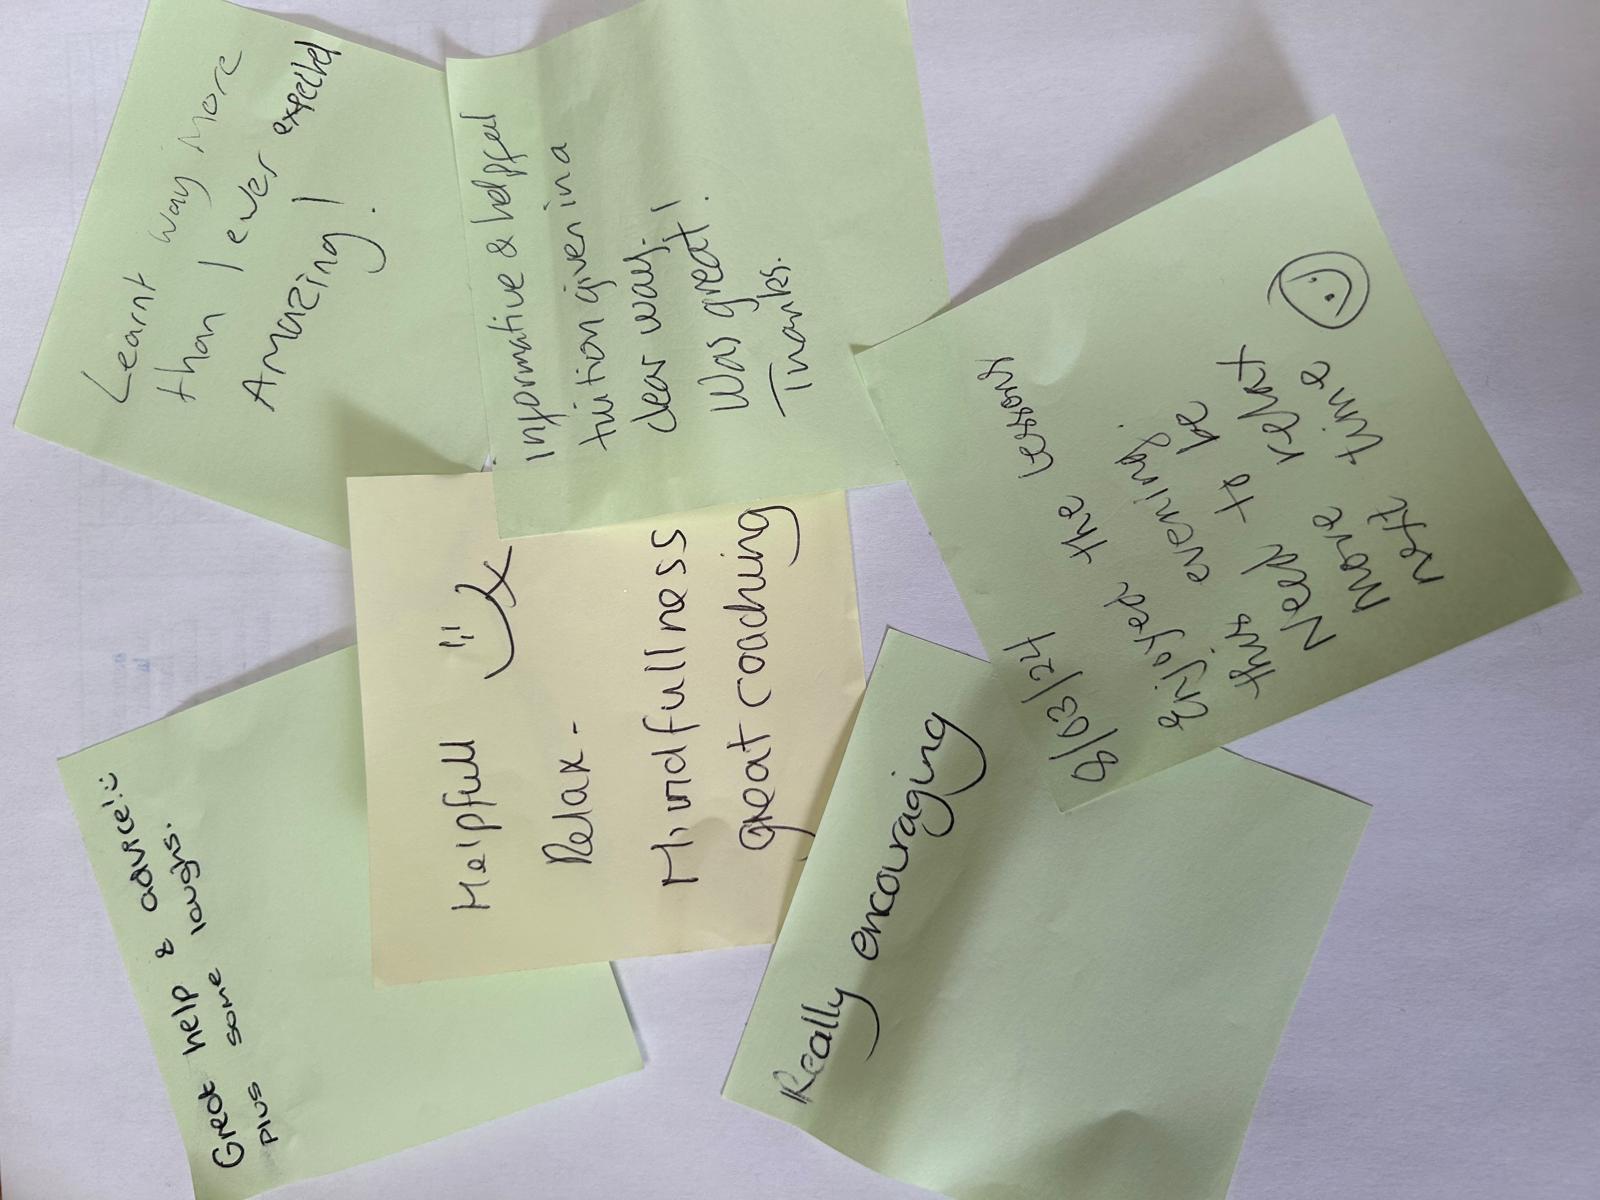 Great help & advice!
plus some laughs.
Learnt way more
than I ever expected
Amazing!
Helpfull
x
Relax -
Mindfullness
great coaching
informative & helpful
tuition given in a
clear way.
Was great!
Thanks.
Really encouraging
8/03/24
Enjoyed the lessons
this evening.
Need to be
more relax
next time